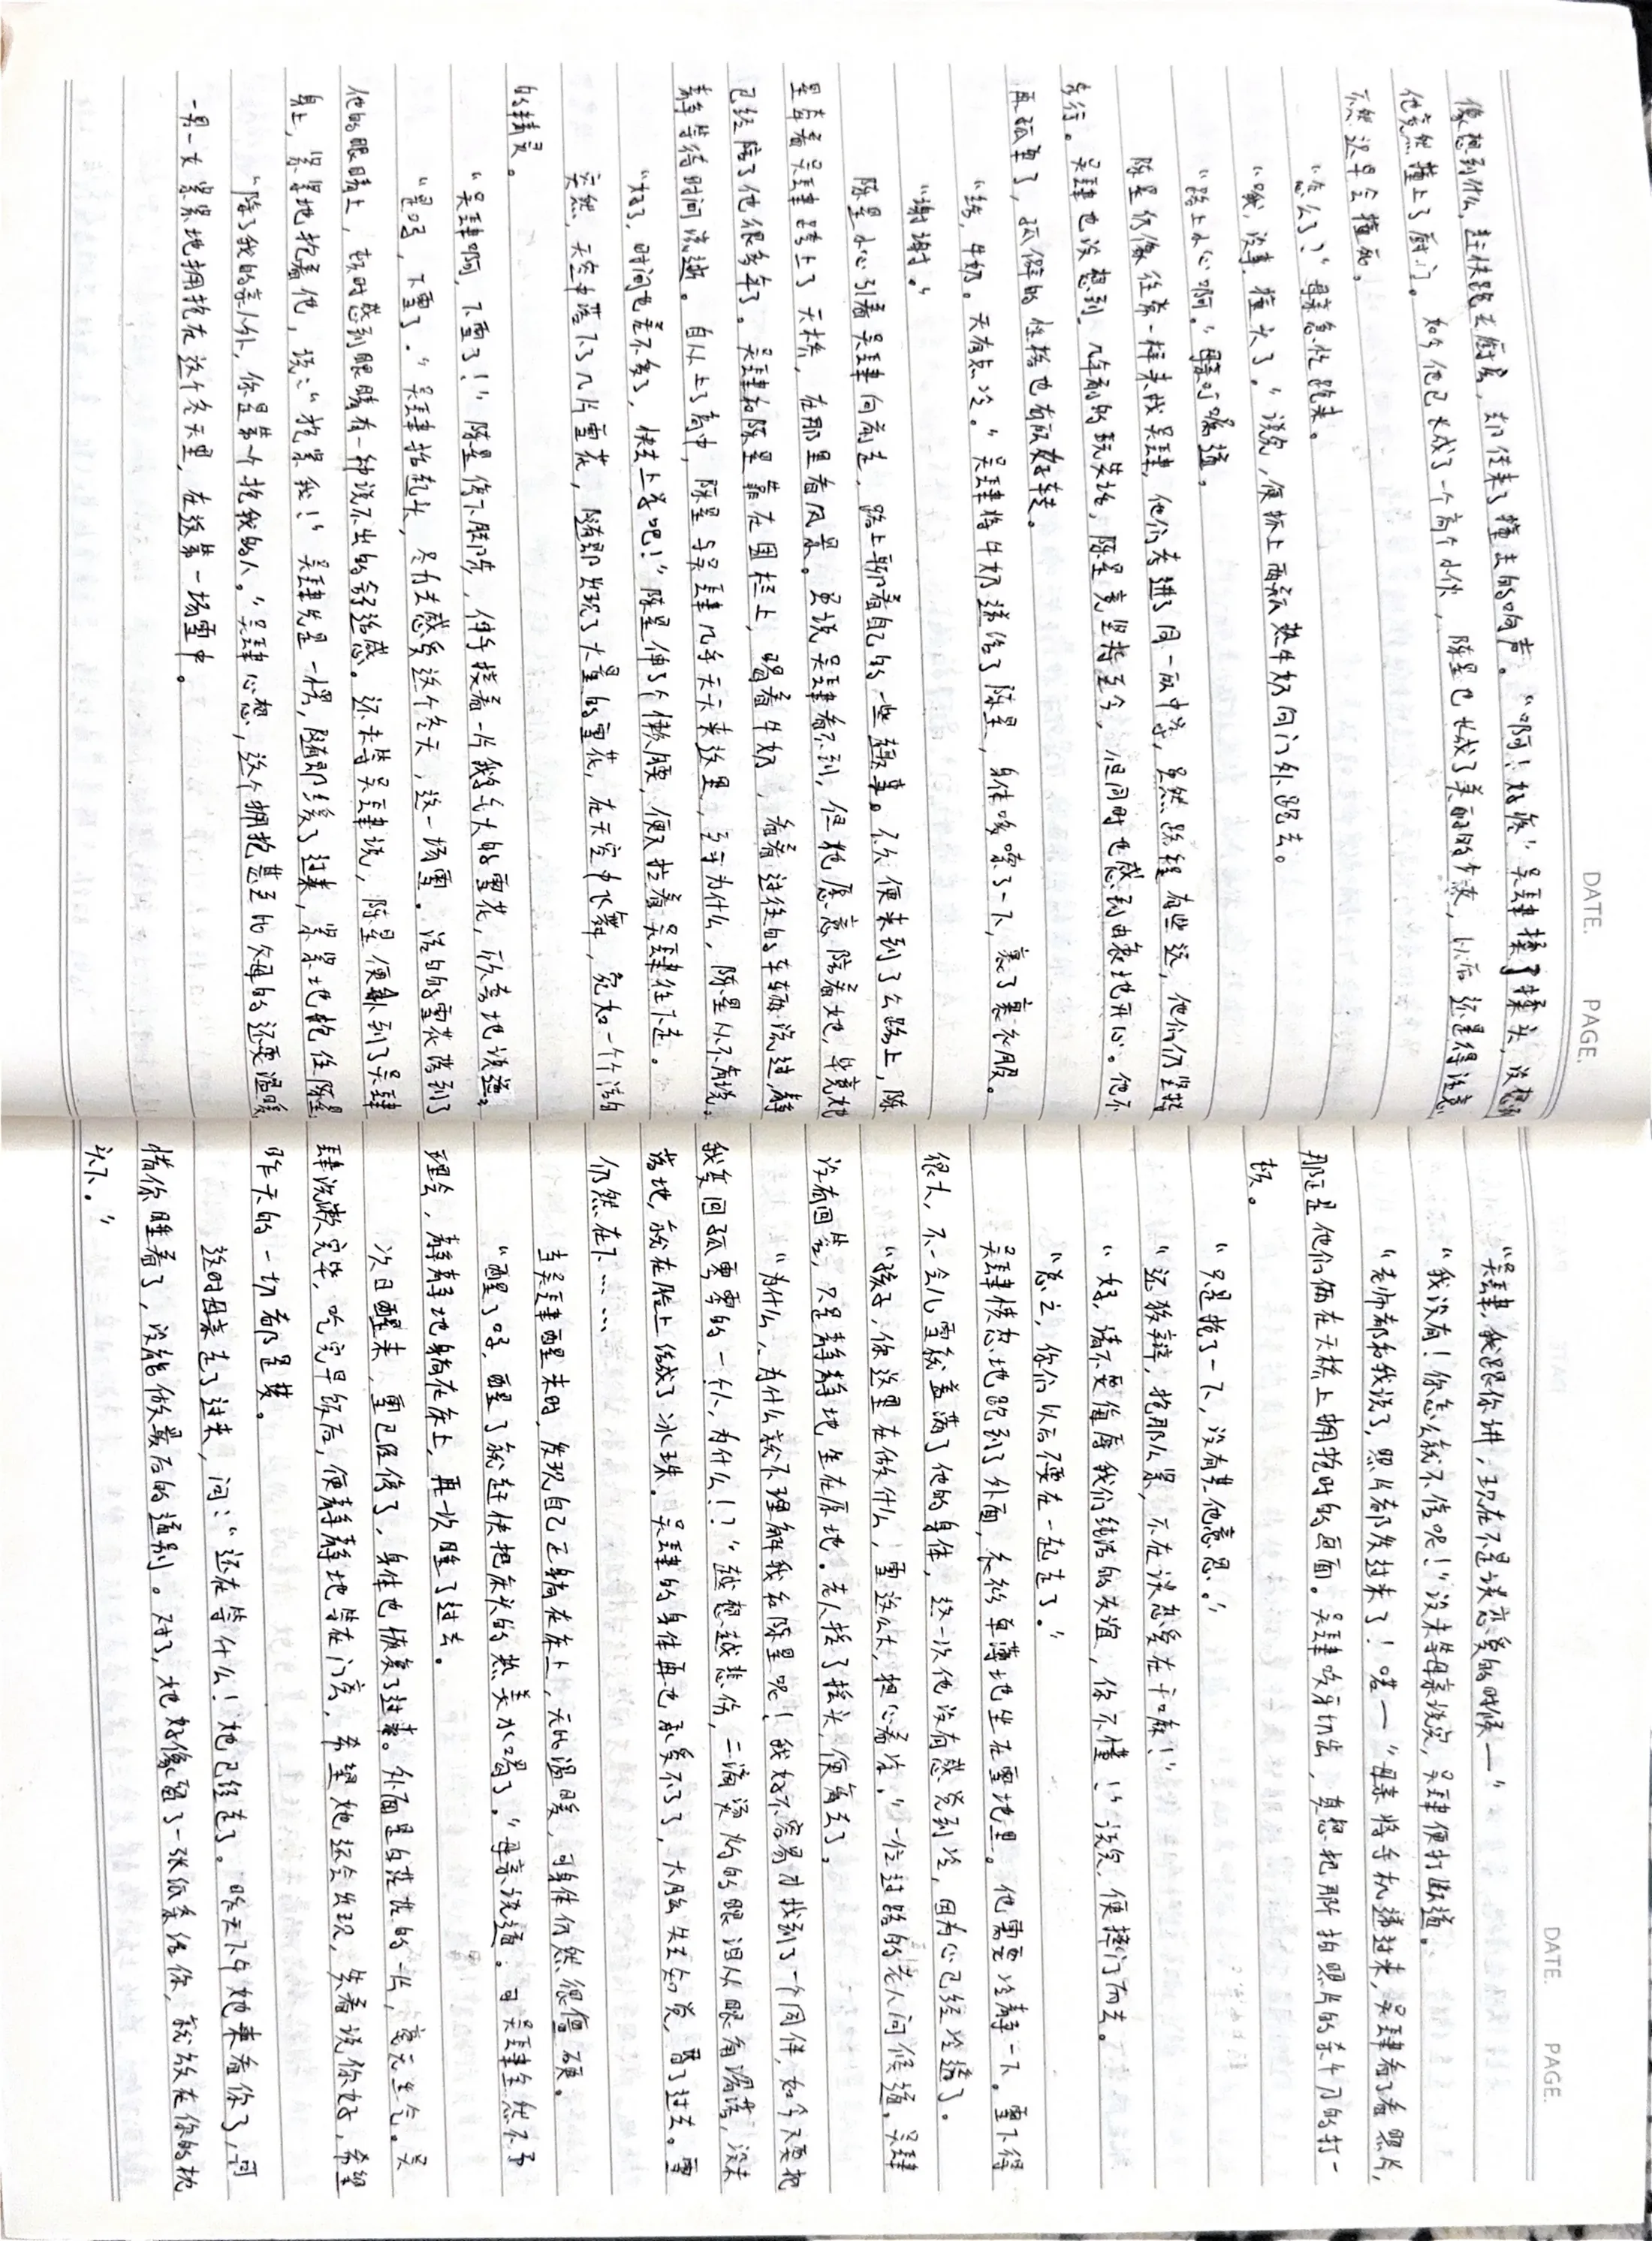 DATE. PAGE.
像想到什么,赶快跑去厨房,却传来了撞击的响声。"啊!好疼"吴肆揉了揉头,没想到
他竟然撞上了厨门。如今他已长成了一个高个小伙,陈星也长成了美丽的少女,以后还是得注意
不然迟早会撞死。
"怎么了?"母亲急忙跑来。
"哦,没事,撞头了。"说完,便抓上两瓶热牛奶向门外跑去。
"路上小心啊。"母亲叮嘱道。
陈星仍像往常一样来找吴肆,他们考进了同一所中学,虽然路程有些远,他们仍坚持
步行。吴肆也没想到,几年前的玩笑话,陈星竟坚持至今,但同时也感到由衷地开心。他不
再孤单了,孤僻的性格也有所好转。
"给,牛奶。天有点冷。"吴肆将牛奶递给了陈星,身体哆嗦了一下,裹了裹衣服。
"谢谢。"
陈星小心引着吴肆向前走,路上聊着自己的一些趣事。不久便来到了公路上,陈
星牵着吴肆踏上了天桥,在那里看风景。虽说吴肆看不到,但他愿意陪着她,毕竟她
已经陪了他很多年了。吴肆和陈星靠在围栏上,喝着牛奶,看着过往的车辆流过,静
静等待时间流逝。自从上了高中,陈星与吴肆几乎天天来这里,至于为什么,陈星从不肯说。
"好了,时间也差不多了,快去上学吧!"陈星伸了个懒腰,便又拉着吴肆往下走。
突然,天空中落下了几片雪花,随即出现了大量的雪花,在天空中飞舞,宛如一个个洁白
的精灵。
"吴肆啊,下雪了!"陈星停下脚步,伸手接着一片鹅毛大的雪花,欣喜地说道。
"是吗,下雪了。"吴肆抬起头,尽力去感受这个冬天,这一场雪。洁白的雪花落到了
他的眼睛上,顿时感到眼睛有一种说不出的舒适感。还未等吴肆说,陈星便扑到了吴肆
身上,紧紧地抱着他,说:"抱紧我!"吴肆先是一愣,随即缓了过来,紧紧地抱住陈星
"除了我的亲人外,你是第一个抱我的人。"吴肆心想,这个拥抱甚至比父母的还要温暖
一男一女紧紧地拥抱在这个冬天里,在这第一场雪中。
DATE. PAGE.
"吴肆,我跟你讲,现在不是谈恋爱的时候—"
"我没有!你怎么就不信呢!"没来等母亲说完,吴肆便打断道。
"老师都和我说了,照片都发过来了!喏—"母亲将手机递过来,吴肆看了看照片,
那正是他们俩在天桥上拥抱时的画面。吴肆咬牙切齿,真想把那拍照片的杀千刀的打一
顿。
"只是抱了一下,没有其他意思。"
"还狡辩,抱那么紧,不在谈恋爱在干嘛!"
"好,请不要侮辱我们纯洁的友谊,你不懂!"说完,便摔门而去。
"总之,你们以后不要在一起走了。"
吴肆愤怒地跑到了外面,衣衫单薄地坐在雪地里。他需要冷静一下。雪下得
很大,不一会儿雪就盖满了他的身体,这一次他没有感觉到冷,因为心已经冷透了。
"孩子,你这里在做什么,雪这么大,担心着凉。"一位过路的老人问候道,吴肆
没有回答,只是静静地坐在原地。老人摇了摇头,便离去了。
"为什么,为什么就不理解我和陈星呢!我好不容易才找到了一个同伴,如今又要把
我变回孤零零的一个人,为什么!"越想越悲伤,二滴滚烫的眼泪从眼角滑落,没未
落地,就在脸上结成了冰珠。吴肆的身体再也承受不了了,大脑失去知觉,昏了过去。雪
仍然在下……
当吴肆醒来时,发现自己正躺在床上,无比温暖,可身体仍然很僵硬。
"醒了呀,醒了就赶快把床头的热姜水喝了。"母亲说道。可吴肆全然不予
理会,静静地躺在床上,再一次睡了过去。
次日醒来,雪已经停了,身体也恢复了过来。外面是白茫茫的一片,毫无生气。吴
肆洗漱完毕,吃完早饭后,便静静地坐在门旁,希望她还会出现,笑着说你好,希望
昨天的一切都是梦。
这时母亲走了过来,问:"还在等什么!她已经走了。昨天下午她来看你了,可
惜你睡着了,没能做最后的道别。对了,她好像留了一张纸条给你,就放在你的枕
头下。"